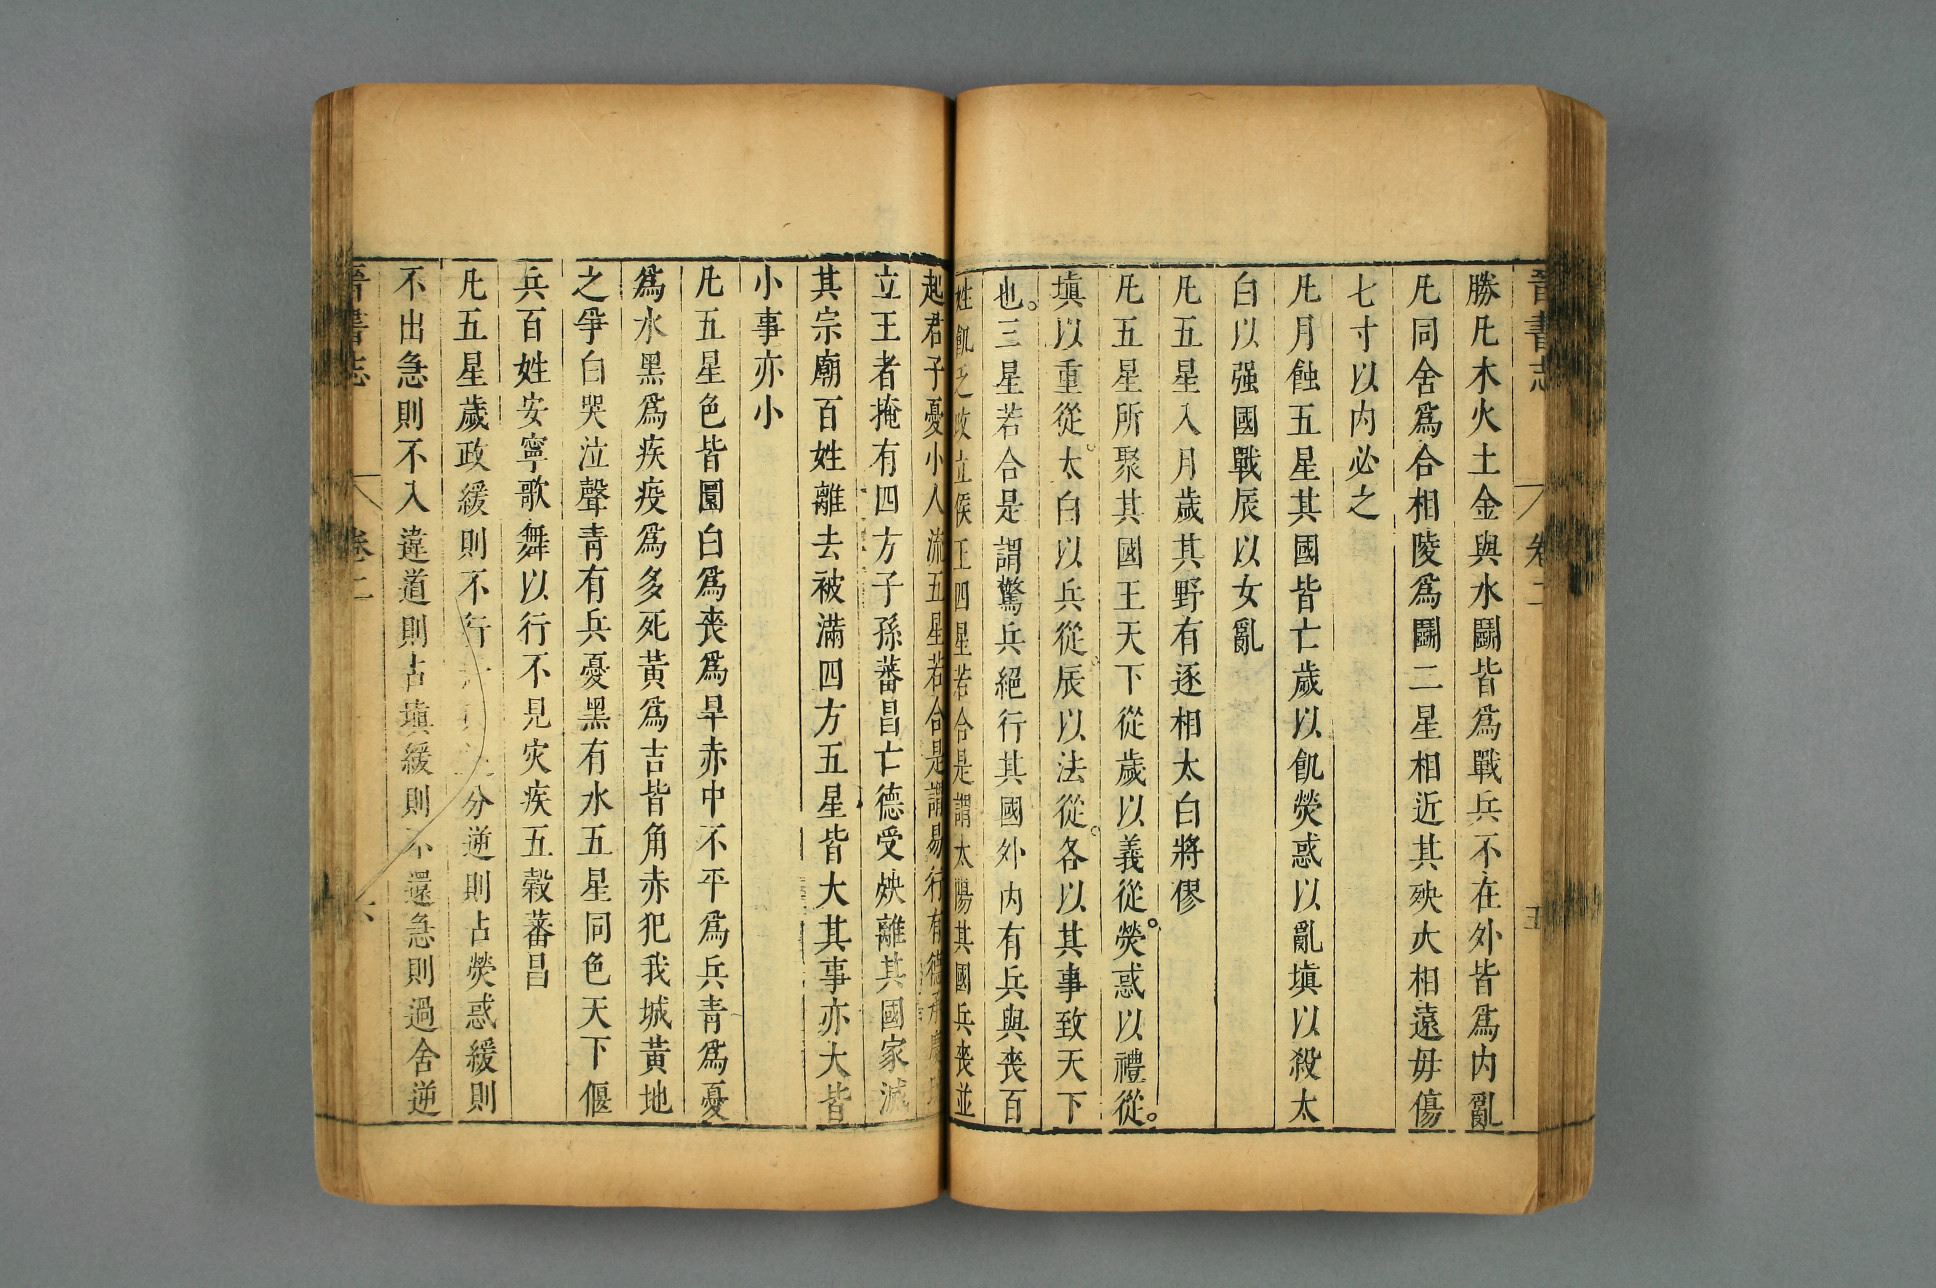 晉書志 卷二 五
勝凡木火土金與水鬭皆爲戰兵不在外皆爲内亂
凡同舍爲合相陵爲鬭二星相近其殃大相遠毋傷
七寸以内必之
凡月蝕五星其國皆亡歲以飢熒惑以亂塡以殺太
白以强國戰辰以女亂
凡五星入月歲其野有逐相太白將僇
凡五星所聚其國王天下從歲以義從。熒惑以禮從。
塡以重從。太白以兵從。辰以法從。各以其事致天下
也。三星若合是謂驚兵絕行其國外内有兵與喪百
姓飢乏改立侯王四星若合是謂太陽其國兵喪並
起君子憂小人流五星若合是謂易行有德承慶
立王者掩有四方子孫蕃昌亡德受殃離其國家滅
其宗廟百姓離去被滿四方五星皆大其事亦大皆
小事亦小
凡五星色皆圜白爲喪爲旱赤中不平爲兵青爲憂
爲水黑爲疾疫爲多死黃爲吉皆角赤犯我城黃地
之爭白哭泣聲青有兵憂黑有水五星同色天下偃
兵百姓安寧歌舞以行不見灾疾五穀蕃昌
凡五星歲政緩則不行分逆則占熒惑緩則
不出急則不入違道則占塡緩則不還急則過舍逆
晉書志 卷二 六